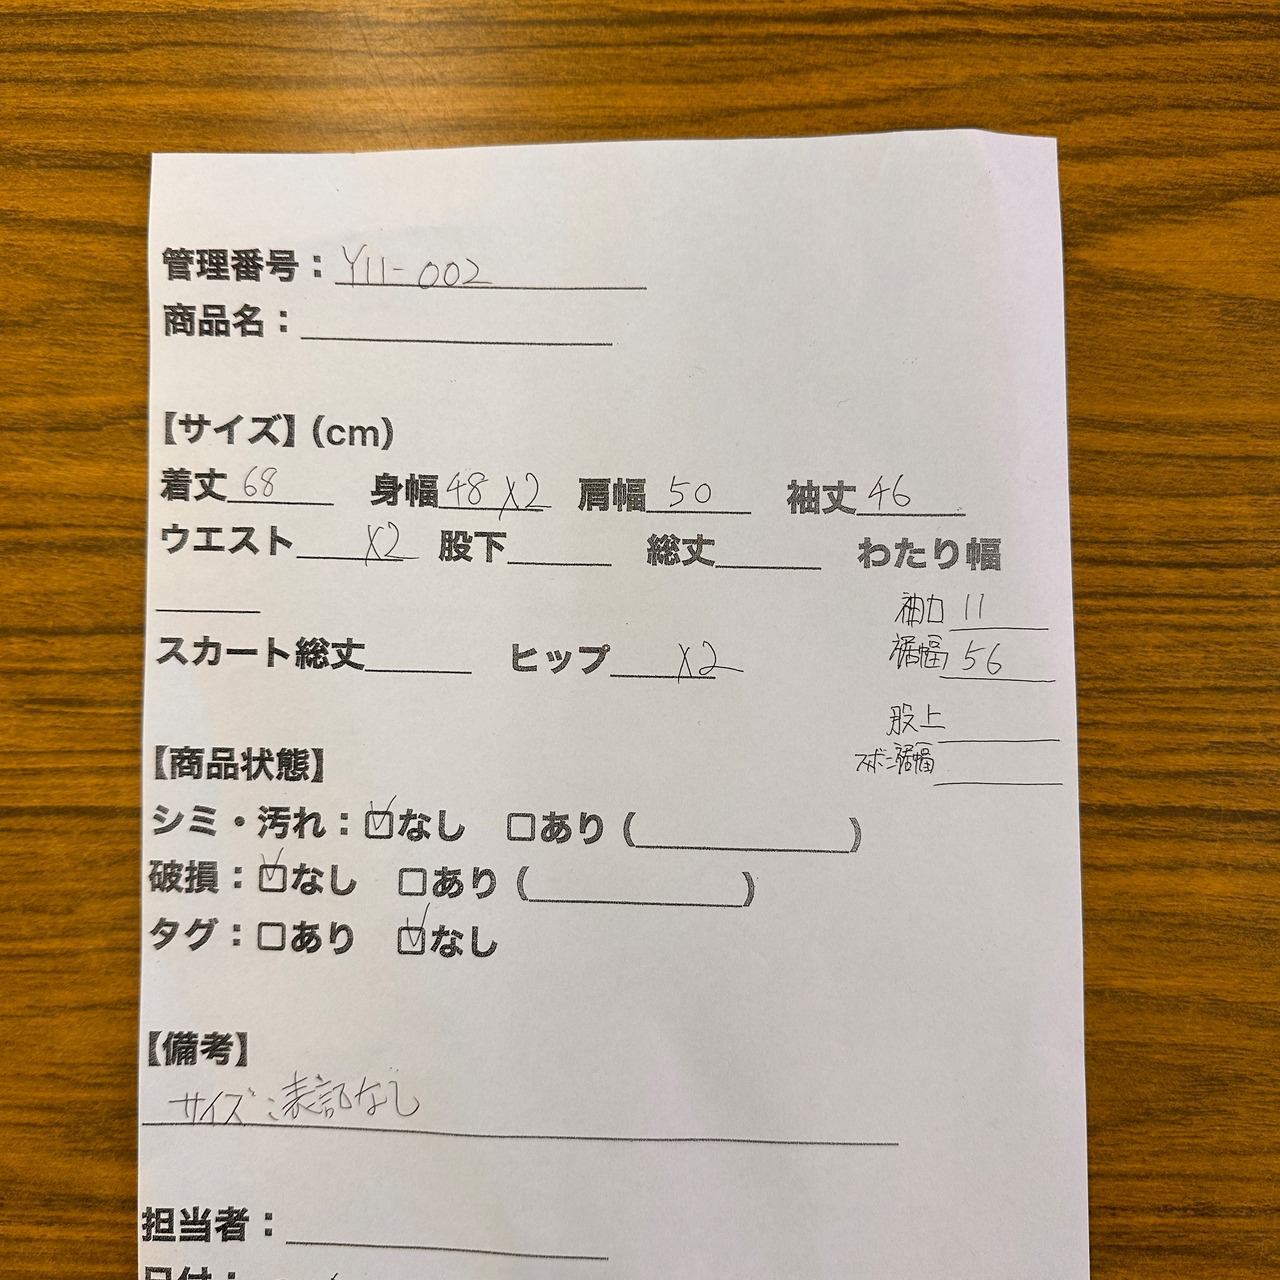 管理番号：Y11-002
商品名：
【サイズ】(cm)
着丈 68 身幅 48 X2 肩幅 50 袖丈 46
ウエスト X2 股下 総丈 わたり幅
袖力 11
スカート総丈 ヒップ X2 裾幅 56
股上
ズボン裾幅
【商品状態】
シミ・汚れ：☑なし □あり ( )
破損：☑なし □あり ( )
タグ：□あり ☑なし
【備考】
サイズ：表記なし
担当者：
日付：